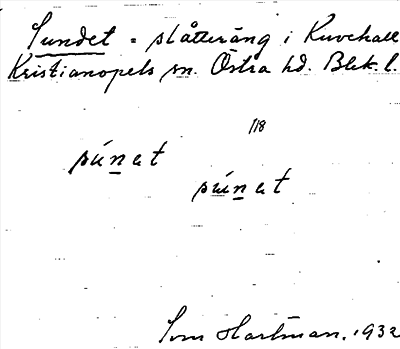 Sundet = slåtteräng i Kuvehall
Kristianopels sn. Östra hd. Blek. l.
118
súnet
súnet
Tom Hartman. 1932